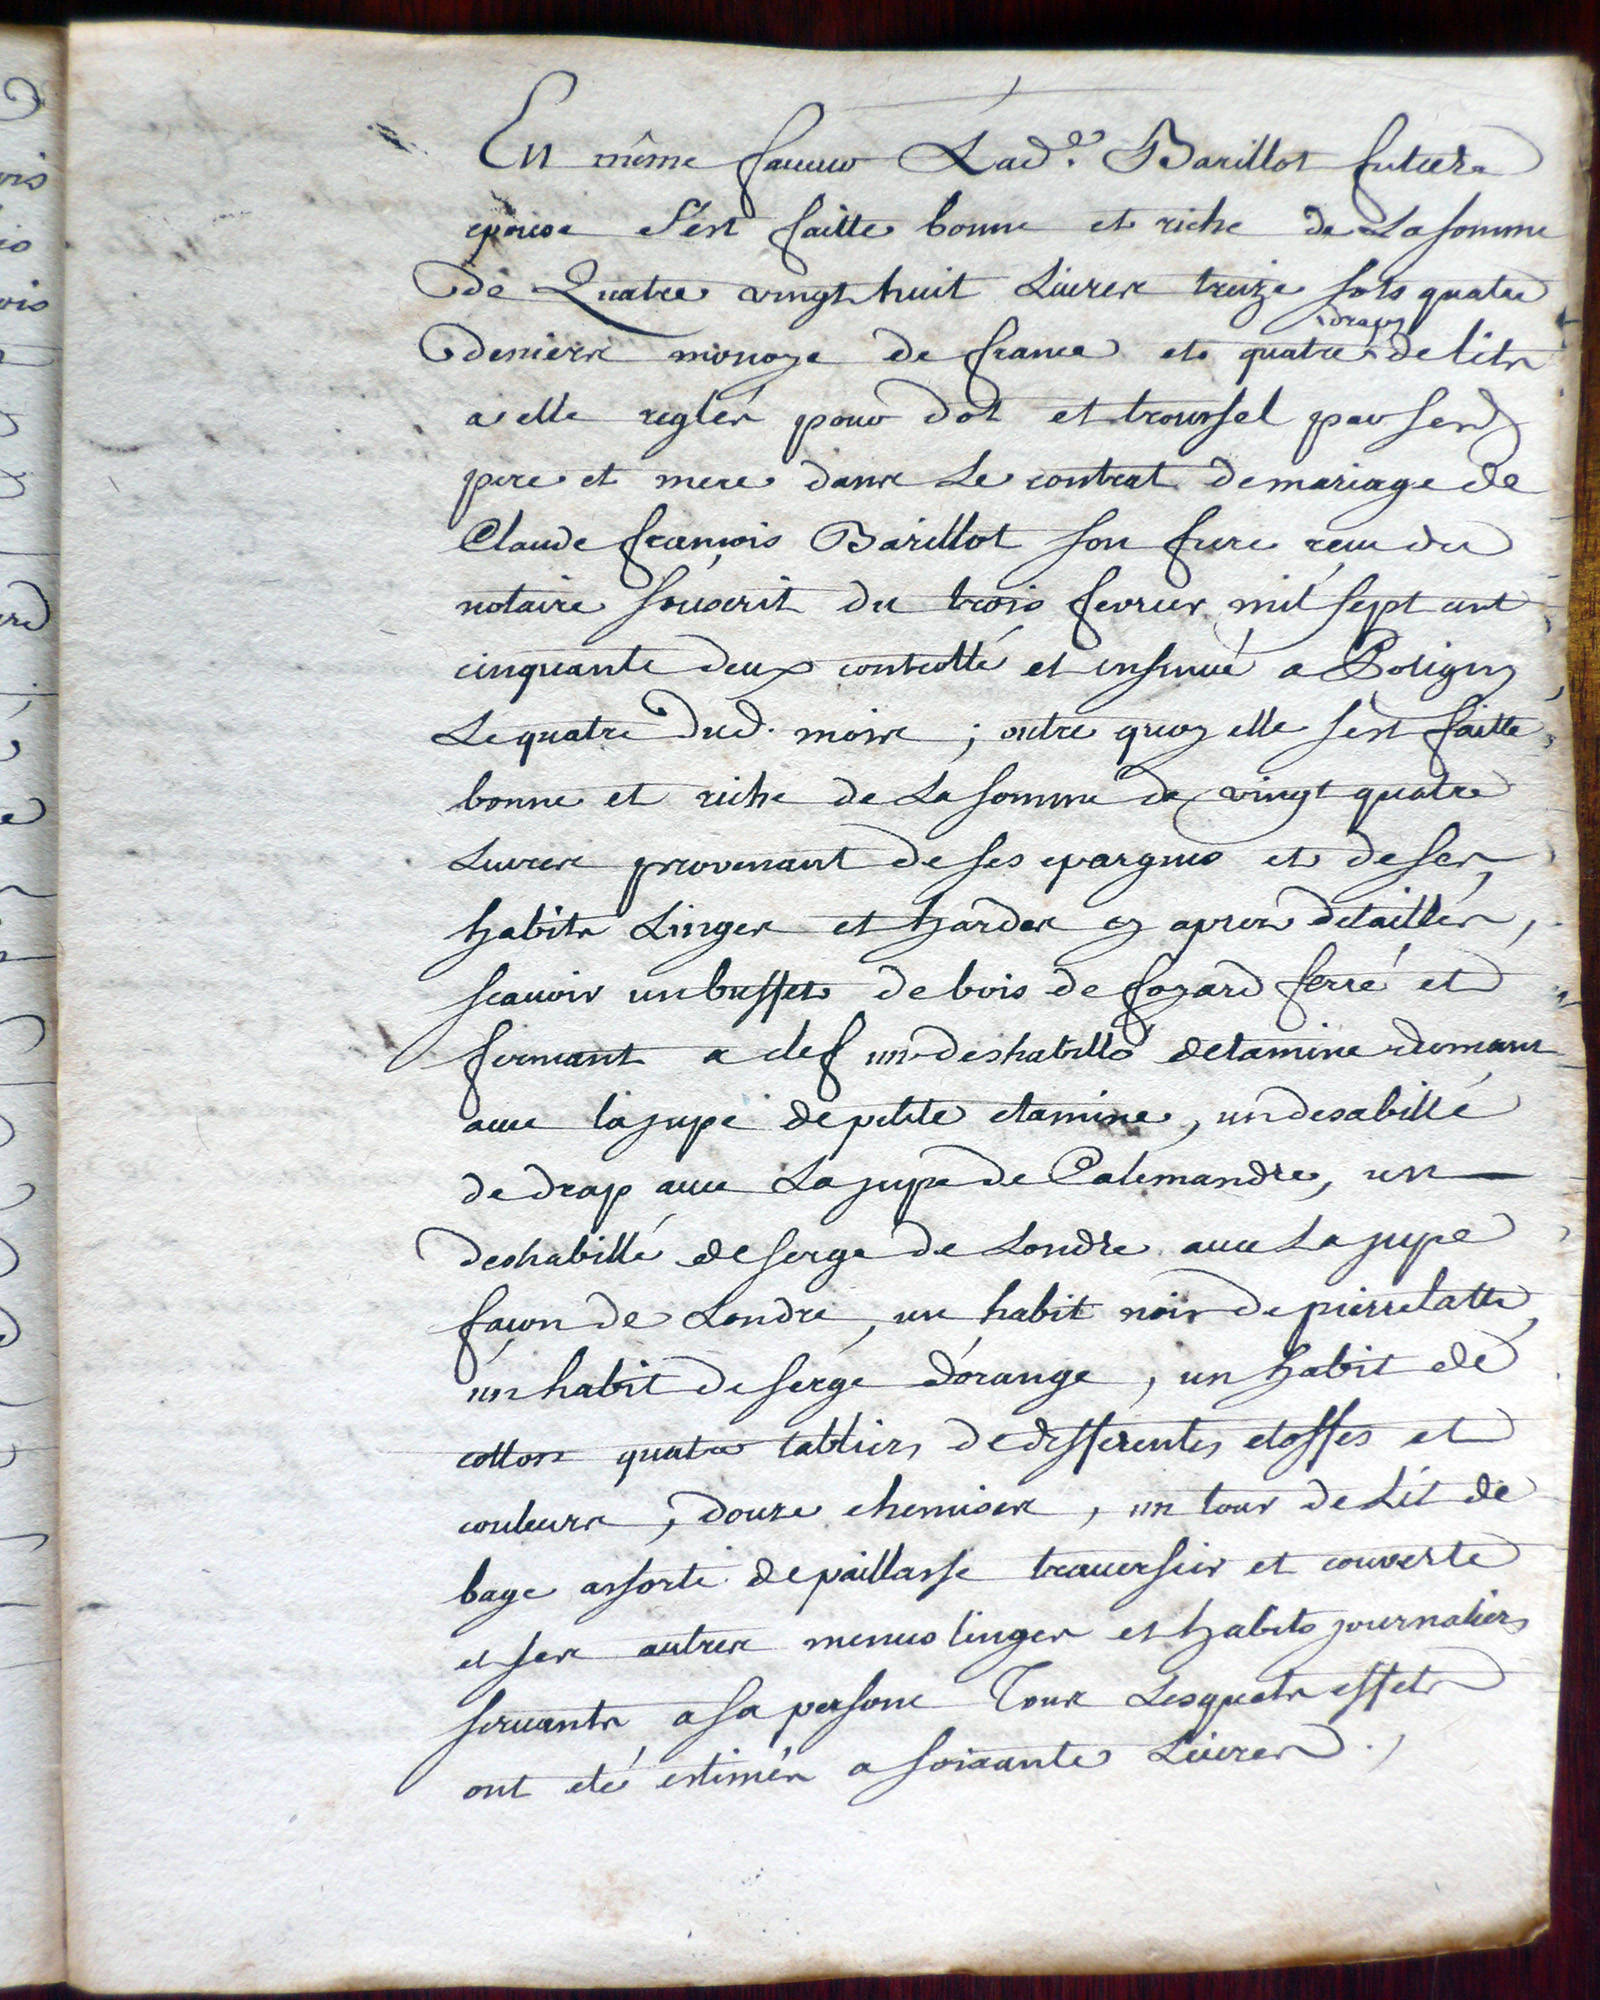 En même faveur Lad.e Barillot future
epouse s'est faitte bonne et riche de La somme
de Quatre vingt huit Livres treize sols quatre
deniers monoye de france et quatre draps de lits
a elle reglés pour dot et troussel par ses
pere et mere dans Le contrat de mariage de
Claude françois Barillot son frere reçu du
notaire souscrit du trois fevrier mil sept cent
cinquante deux controllé et insinué a Poligny
Le quatre dud. mois ; outre quoy elle s'est faitte
bonne et riche de La somme de vingt quatre
Livres provenant de ses epargnes et de ses
habits Linges et hardes cy apres detaillés,
scauoir un buffet de bois de foyard ferré et
fermant a clef un deshabillé detamine dumans
auec la jupe de petite etamine, un desabillé
de drap auec La jupe de Calemandre, un
deshabillé de serge de Londre auec La jupe
façon de Londre, un habit noir de pierrelatte,
un habit de serge d'orange, un habit de
cotton quatre tabliers de differentes etoffes et
couleurs, douze chemises, un tour de Lit de
bage assorti de paillasse trauersier et couverte
et ses autres menus linges et habits journaliers
seruants a sa persone Tous Lesquels effets
ont eté estimés a soixante Livres.